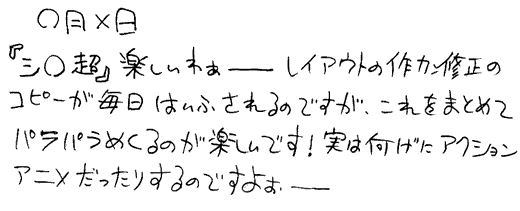 〇月×日
『三〇超』楽しいわぁ――レイアウトの作カン修正の
コピーが毎日はいふされるのですが、これをまとめて
パラパラめくるのが楽しいです!実は何げにアクション
アニメだったりするのですよぉ――